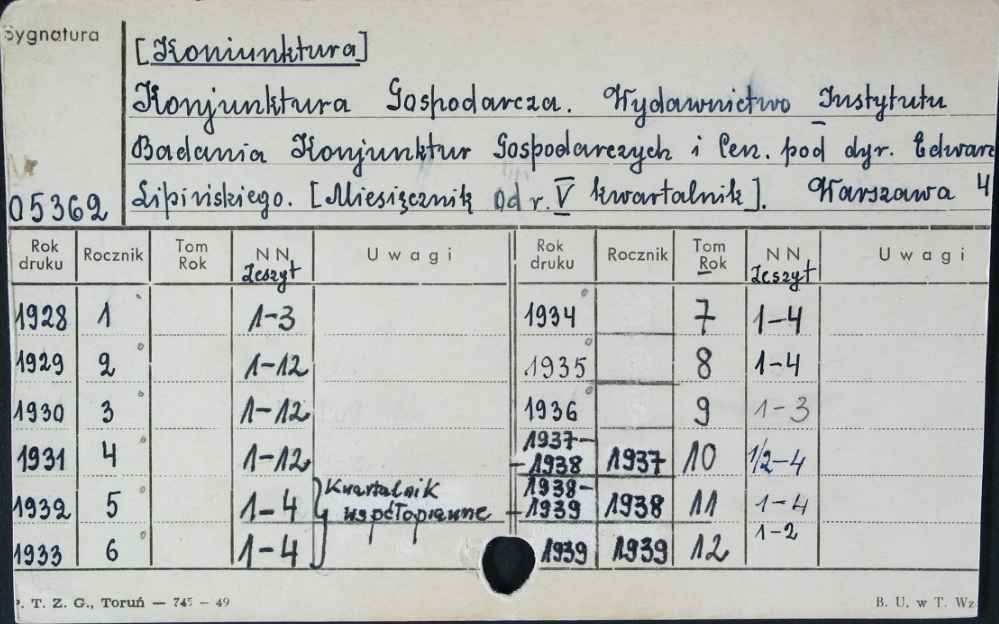 Sygnatura
[Koniunktura]
Konjunktura Gospodarcza. Wydawnictwo Instytutu
Badania Konjunktur Gospodarczych i Cen. pod dyr. Edwar
Lipińskiego. [Miesięcznik od r. V kwartalnik]. Warszawa 4
05362
Rok druku Rocznik Tom Rok NN Zeszyt Uwagi Rok druku Rocznik Tom Rok NN Zeszyt Uwagi
1928 1 1-3 1934 7 1-4
1929 2 1-12 1935 8 1-4
1930 3 1-12 1936 9 1-3
1931 4 1-12 1937-1938 1937 10 1/2-4
1932 5 1-4 Kwartalnik współoprawne 1938-1939 1938 11 1-4
1933 6 1-4 1939 1939 12 1-2
P. T. Z. G., Toruń — 745 — 49
B. U. w T. Wz